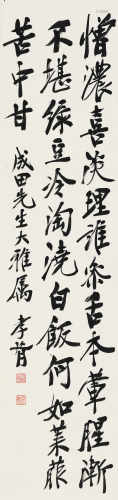 憎濃喜淡理誰參舌本葷腥漸
不堪綠豆冷淘澆白飯何如萊菔
苦中甘 成田先生大雅属 孝胥